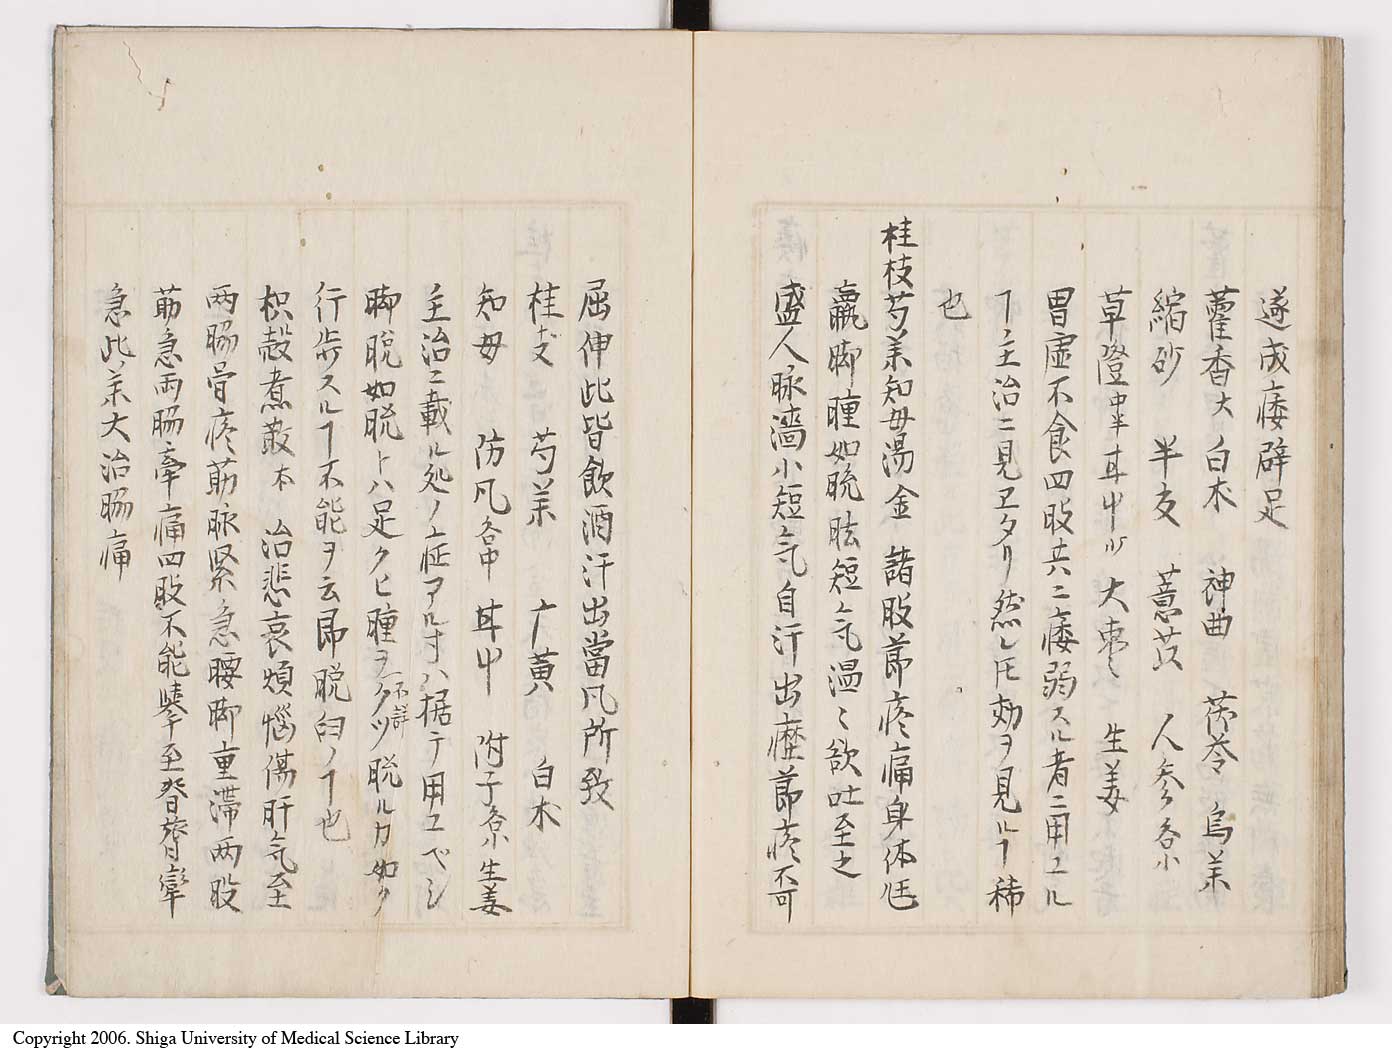 遂成痿躃足
藿香大 白朮 神曲 茯苓 烏薬
縮砂 半夏 薏苡 人参各小
草澄中 莘 甘中ル 大棗 生姜
胃虚不食四肢共ニ痿弱スル者ニ用ユル
ヿ主治ニ見ヱタリ然レ𪜈効ヲ見ルヿ稀
也
桂枝芍薬知母湯金 諸肢節疼痛身体尫
羸脚腫如脱眩短气温〻欲吐至之
盛人脉濇小短气自汗出歴節疼不可
屈伸此皆飲酒汗出當凡所致
桂枝 芍薬 广黄 白朮
知母 防凡各中 甘中 附子 生姜
主治ニ載ル処ノ証アル寸ハ据テ用ユベシ
脚脱如脱トハ足クヒ腫ヲ不詳クツ脱ルカ如ク
行歩スルヿ不能ヲ云即脱臼ノヿ也
枳殻煮散本 治悲哀煩惱傷肝气至
两脇骨疼筋脉緊急腰脚重滞两股
筋急两脇牽痛四肢不能挙至脊膂攣
急此薬大治脇痛
Copyright 2006. Shiga University of Medical Science Library